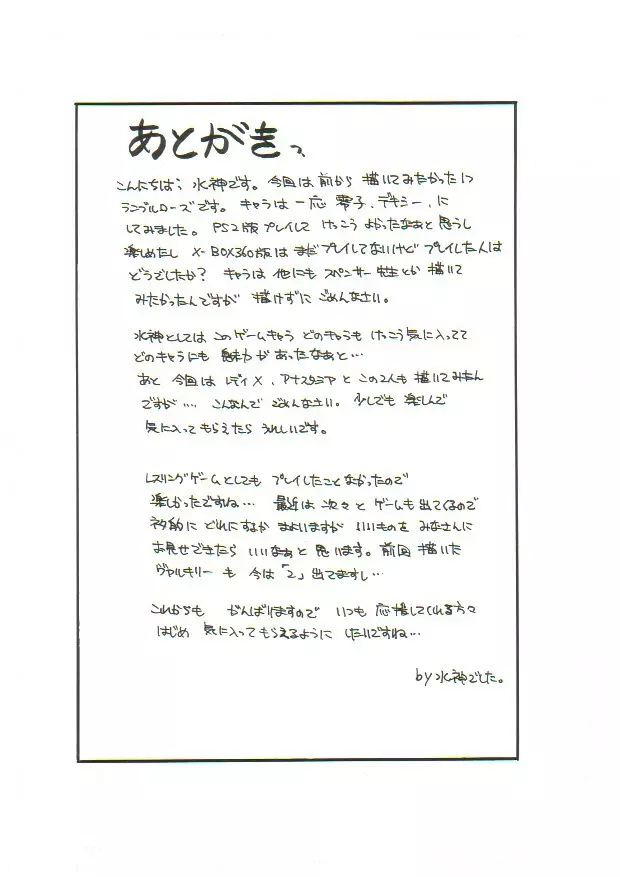 あとがきっ
こんにちは、水神です。今回は前から描いてみたかった
ランブルローズです。キャラは一応零子、デキシー、に
してみました。PS2版プレイして けっこうよかったなぁと思うし
楽しめたし X-BOX360版はまだプレイしてないけど プレイした人は
どうでしたか? キャラは他にも スペンサー先生とか描いて
みたかったんですが 描けずに ごめんなさい。
水神としては このゲームキャラ どのキャラも けっこう気に入ってて
どのキャラにも 魅力があったなぁと…
あと 今回は レディX、アナスタシアと この2人も 描いてみたん
ですが…. こんなんで ごめんなさい。少しでも 楽しんで
気に入ってもらえたら うれしいです。
レスリングゲームとしても プレイしたことなかったので
楽しかったですね… 最近は 次々と ゲームも出てくるので
ネタ的に どれにするか まよいますが いいものを みなさんに
お見せできたら いいなぁと 思います。前回 描いた
ヴァルキリーも 今は「2」出てますし…
これからも がんばりますので いつも 応援してくれる方々
はじめ 気に入ってもらえるように したいですね…
by 水神でした。